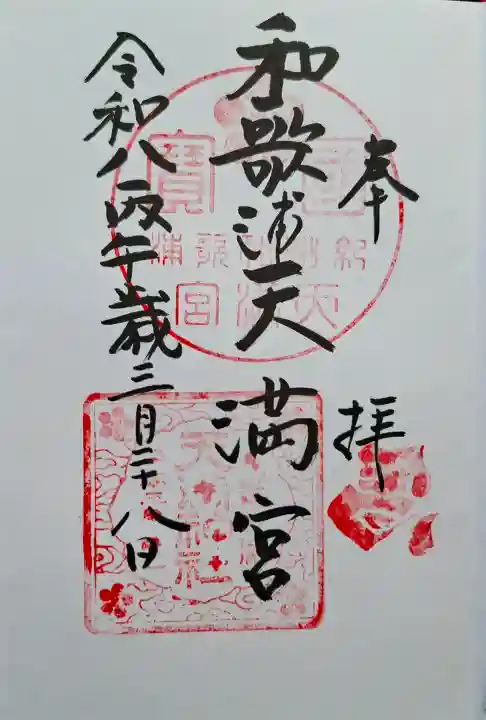 奉
拝
和歌浦天満宮
令和八丙午歳三月二十八日
國寶
紀州和歌浦
天満宮